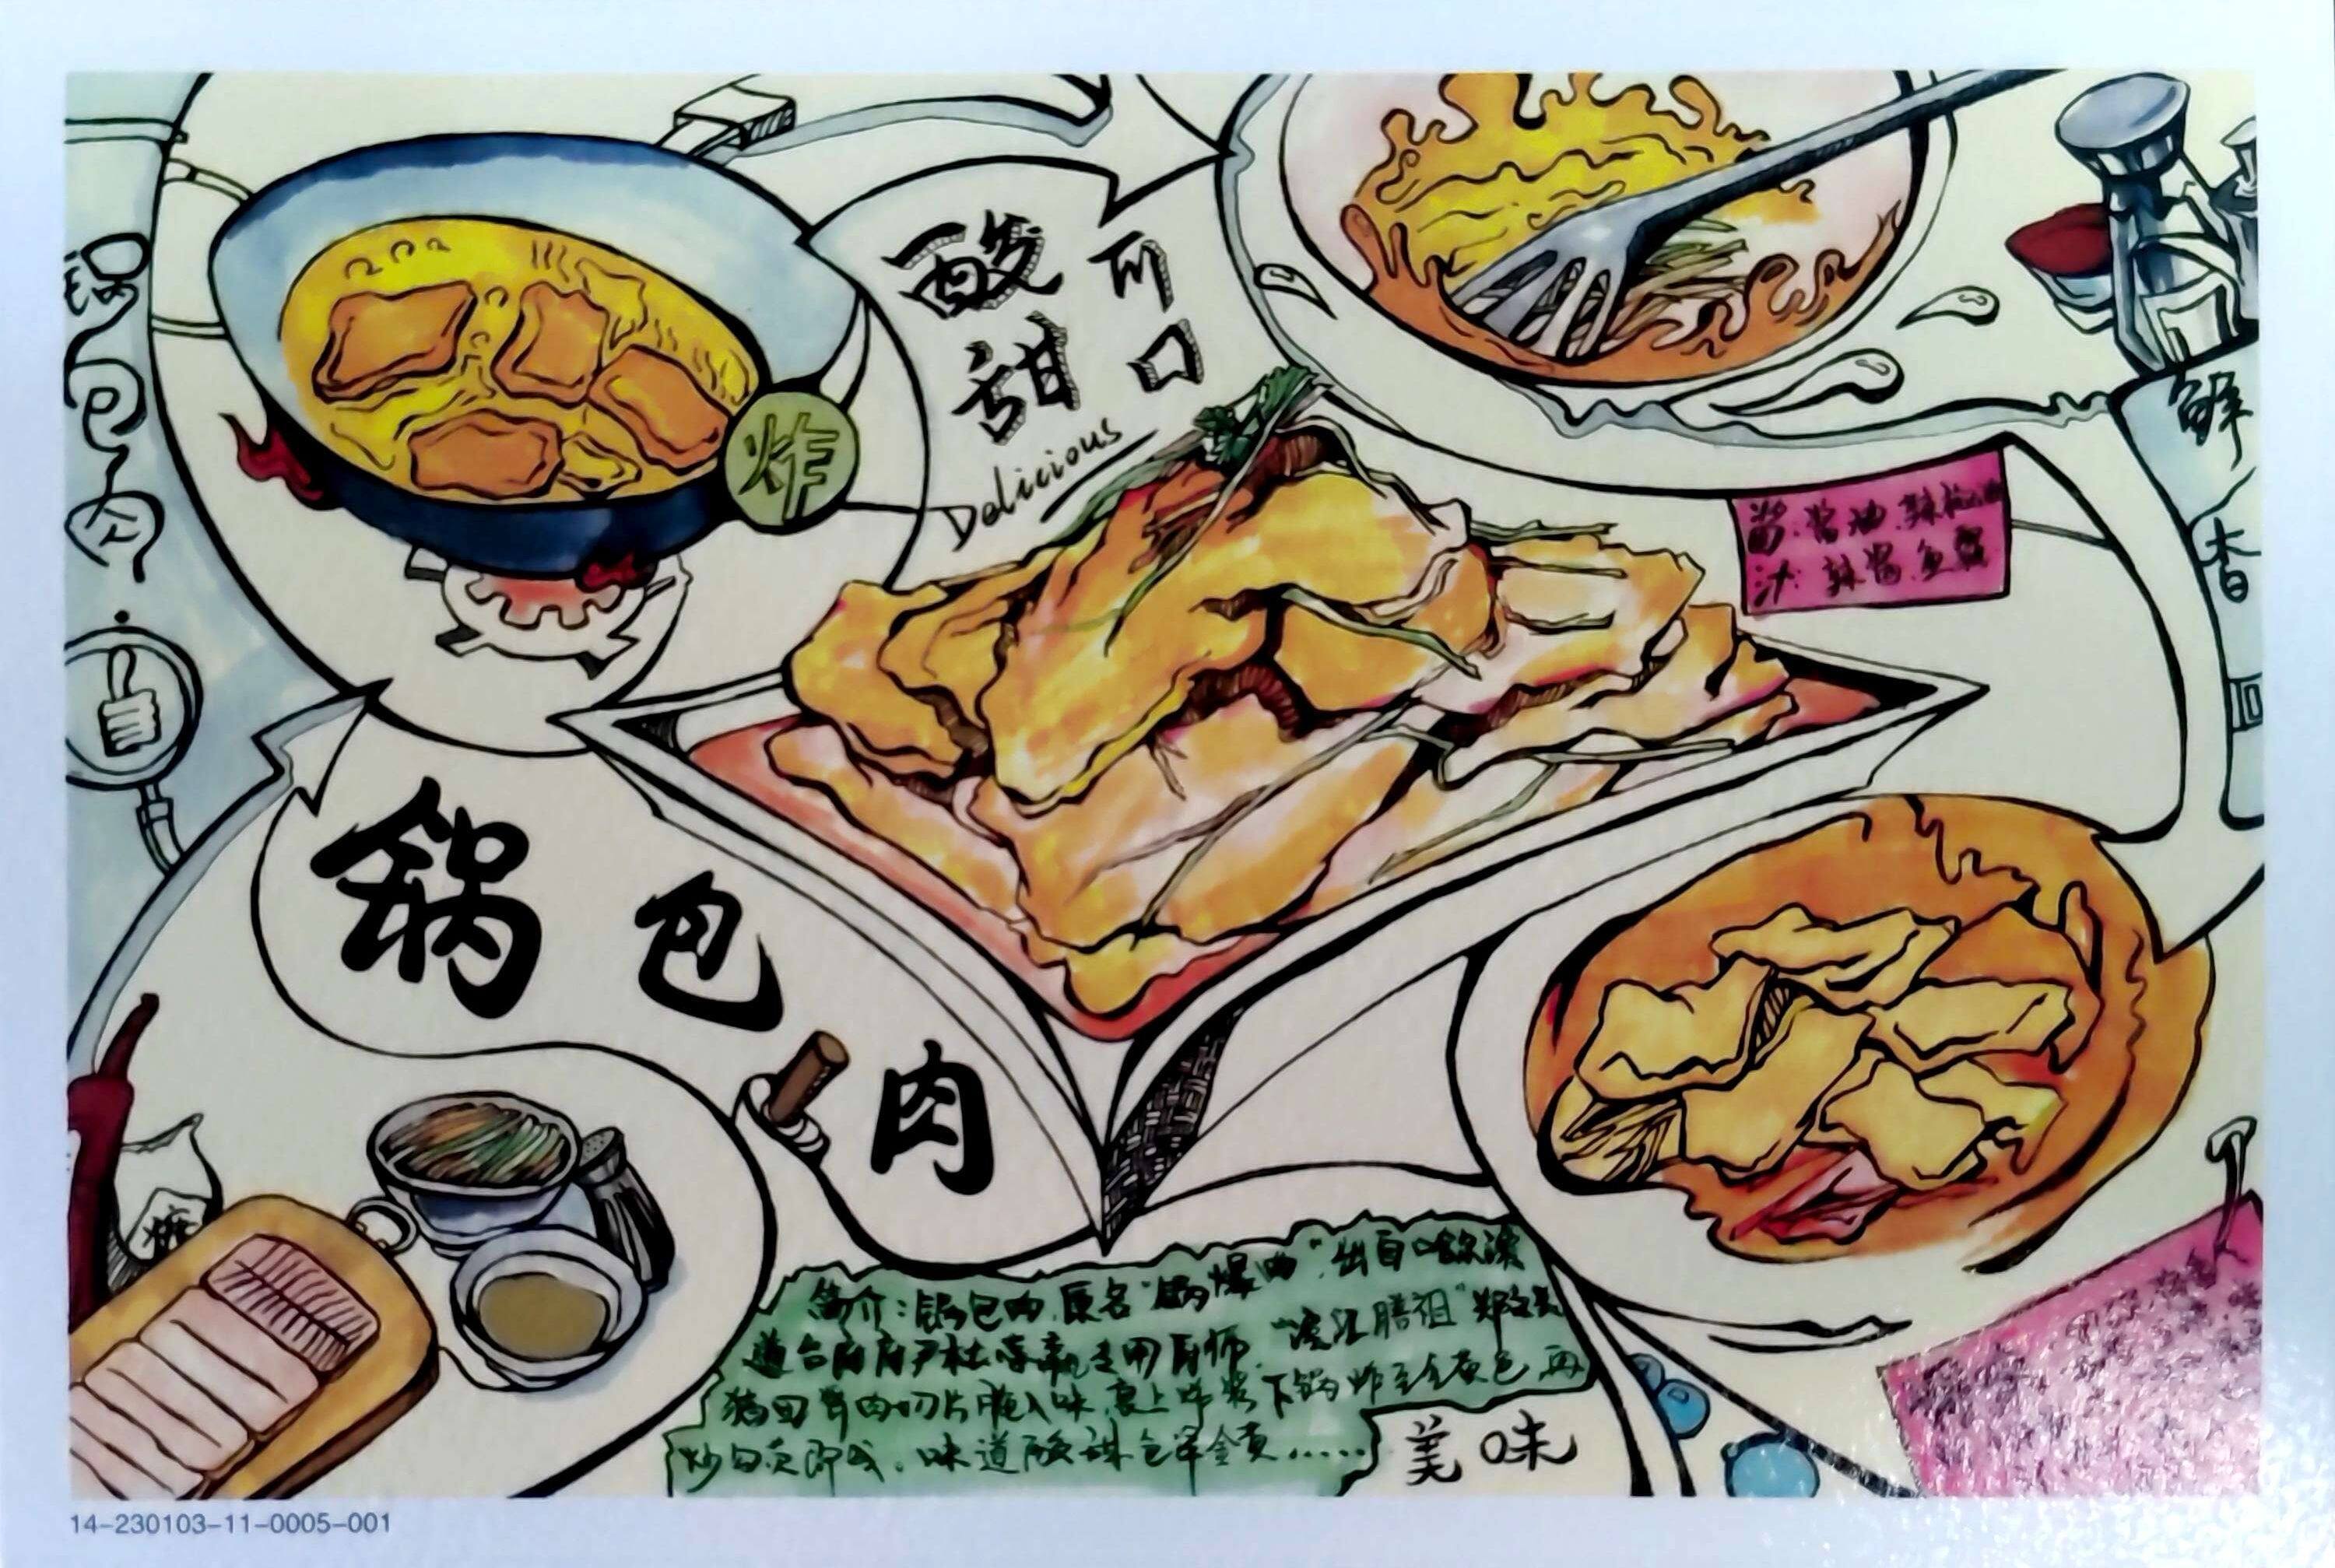 锅包肉
酸甜
可口
Delicious
炸
鲜香
酱:酱油.辣椒油
汁:辣酱.鱼露
锅包肉
糖
简介:锅包肉,原名"锅爆肉",出自哈尔滨
道台府府尹杜学瀛专用厨师"滨江膳祖"郑文
猪里脊肉切片腌入味,裹上炸浆下锅炸至金黄色再
炒匀即成.味道酸甜色泽金黄......
美味
14-230103-11-0005-001